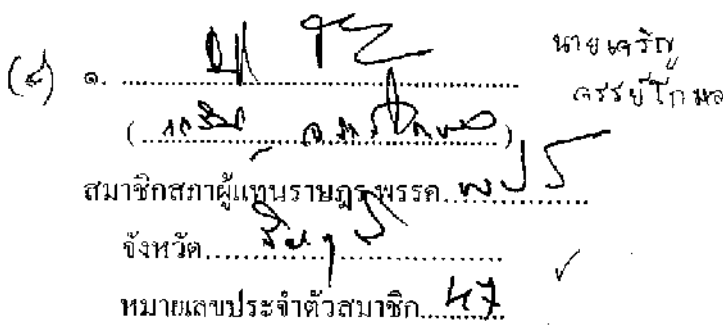 (๔) ๑. ........................................ นายเจริญ
จรรย์โกมล
(........................................)
สมาชิกสภาผู้แทนราษฎร พรรค พปร
จังหวัด ชัยภูมิ
หมายเลขประจำตัวสมาชิก 47 ✓